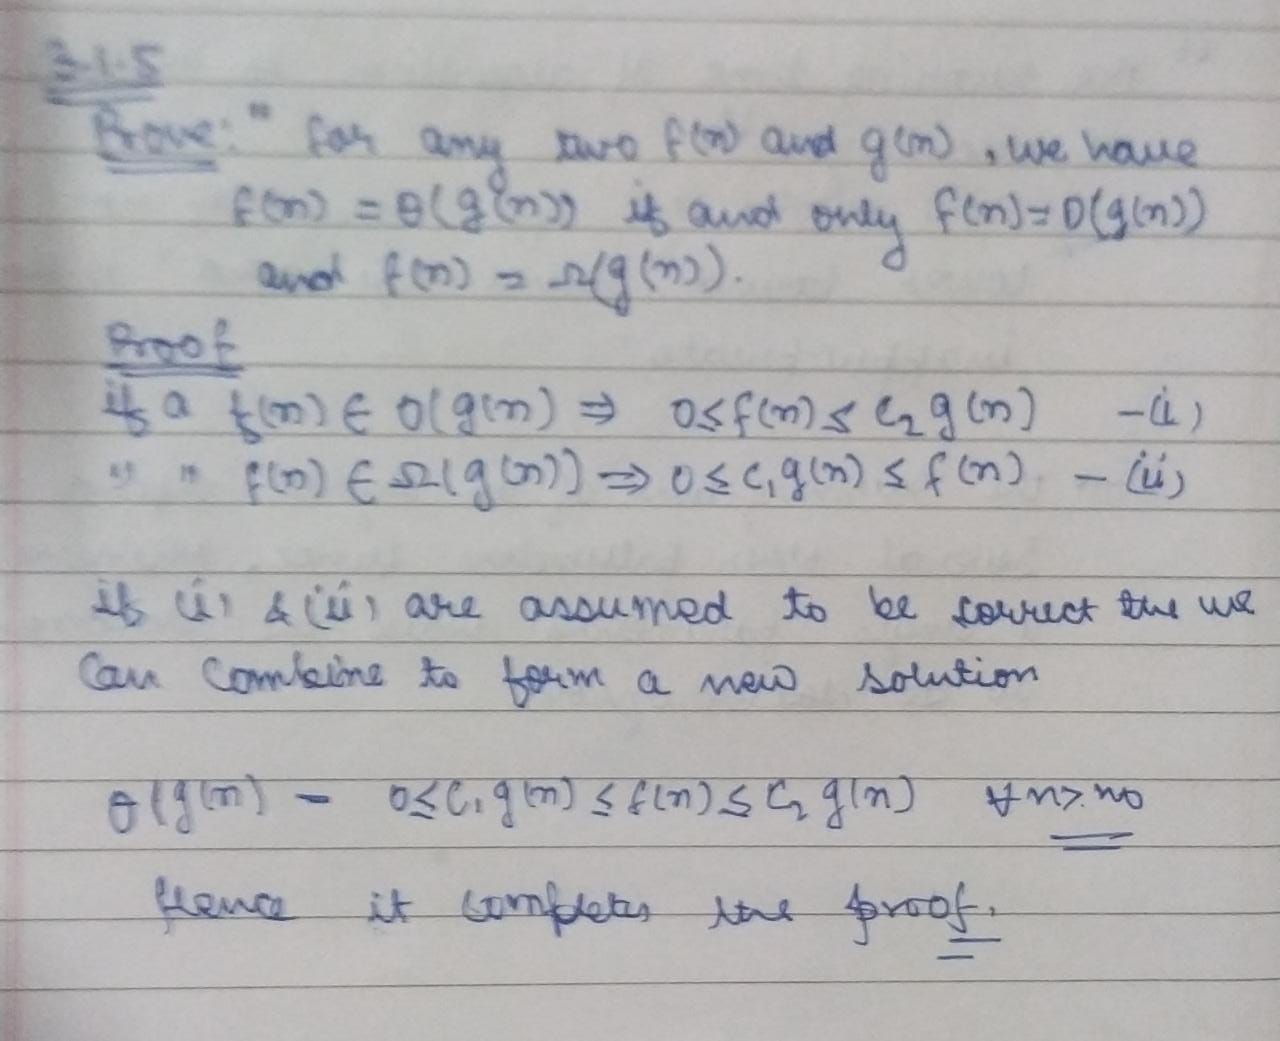 3.1.5
Prove: " for any two f(n) and g(n), we have
f(n) = θ(g(n)) if and only f(n) = O(g(n))
and f(n) = Ω(g(n)).
Proof
if a f(n) ∈ O(g(n) ⇒ 0 ≤ f(n) ≤ c₂ g(n) - (i)
" " f(n) ∈ Ω(g(n)) ⇒ 0 ≤ c₁ g(n) ≤ f(n) - (ii)
if (i) & (ii) are assumed to be correct the we
can combine to form a new solution
θ(g(n) - 0 ≤ c₁ g(n) ≤ f(n) ≤ c₂ g(n) ∀ n > n0
Hence it completes the proof.